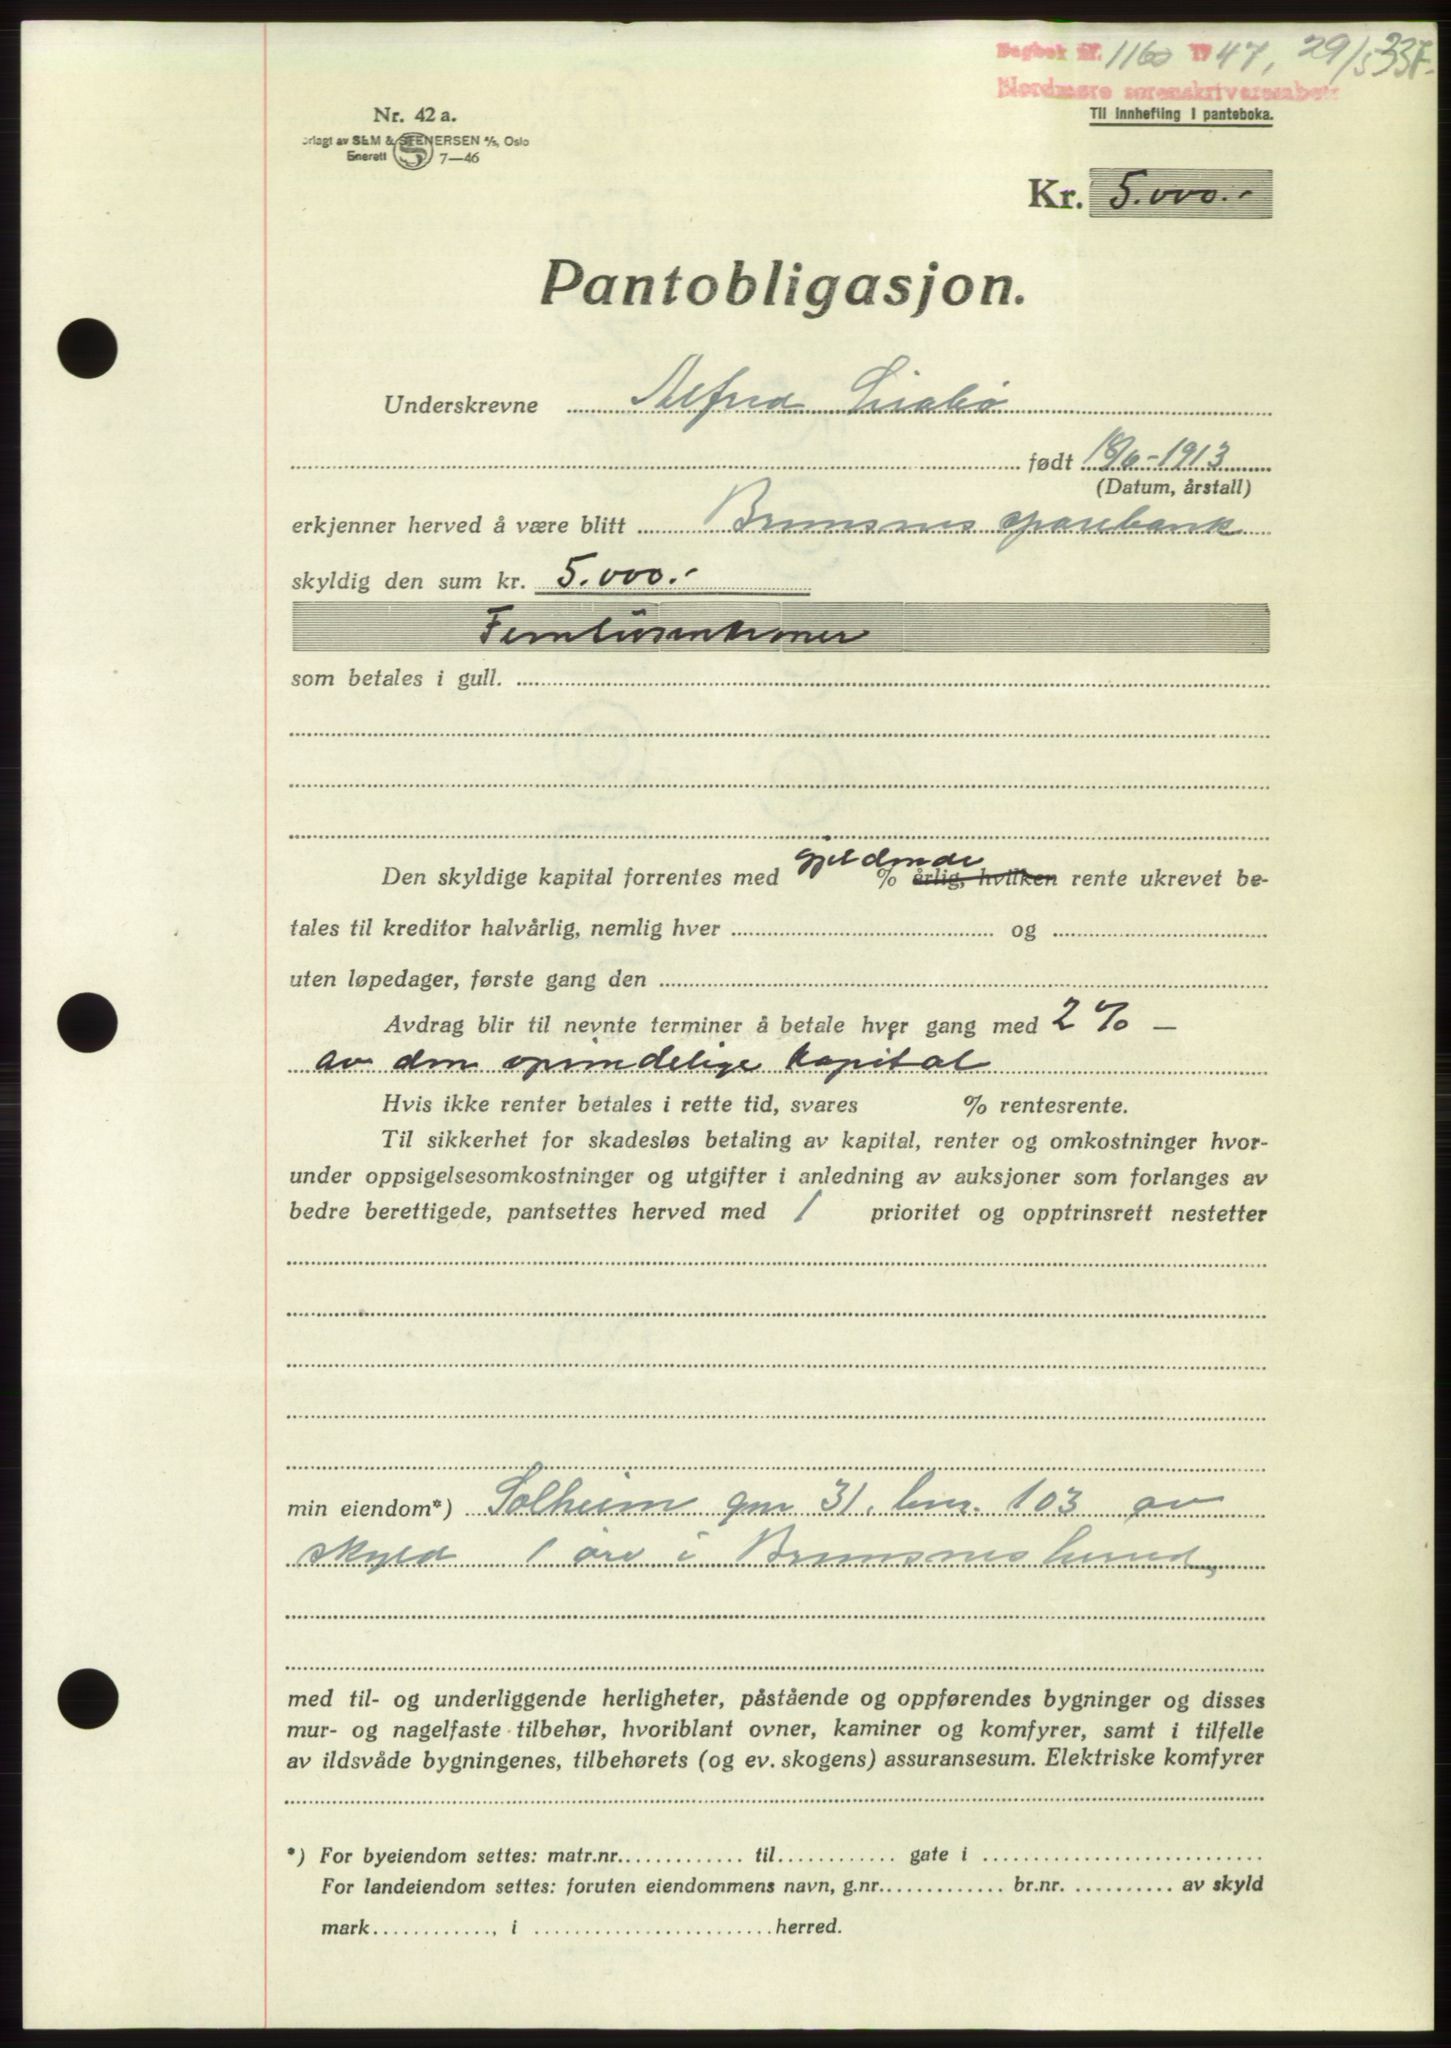 Dagbok nr. 1160 1947, 29/5 337.
Nordmøre sorenskriverembete
Til innhefting i panteboka.
Nr. 42 a.
orlagt av SEM & STENERSEN A/S, Oslo
Enerett 7—46
Kr. 5.000.-
Pantobligasjon.
Underskrevne Alfred Lisabø
født 18/6-1913
(Datum, årstall)
erkjenner herved å være blitt Bremsnes sparebank
skyldig den sum kr. 5.000.-
Femtusenkroner
som betales i gull.
gjeldende
Den skyldige kapital forrentes med % årlig, hvilken rente ukrevet be-
tales til kreditor halvårlig, nemlig hver og
uten løpedager, første gang den
Avdrag blir til nevnte terminer å betale hver gang med 2% —
av den oprindelige kapital
Hvis ikke renter betales i rette tid, svares % rentesrente.
Til sikkerhet for skadesløs betaling av kapital, renter og omkostninger hvor-
under oppsigelsesomkostninger og utgifter i anledning av auksjoner som forlanges av
bedre berettigede, pantsettes herved med 1 prioritet og opptrinsrett nestetter
min eiendom*) Solheim gnr 31. bnr. 103 av
skyld 1 øre i Bremsnes herred,
med til- og underliggende herligheter, påstående og oppførendes bygninger og disses
mur- og nagelfaste tilbehør, hvoriblant ovner, kaminer og komfyrer, samt i tilfelle
av ildsvåde bygningenes, tilbehørets (og ev. skogens) assuransesum. Elektriske komfyrer
*) For byeiendom settes: matr.nr. til gate i
For landeiendom settes: foruten eiendommens navn, g.nr. br.nr. av skyld
mark , i herred.